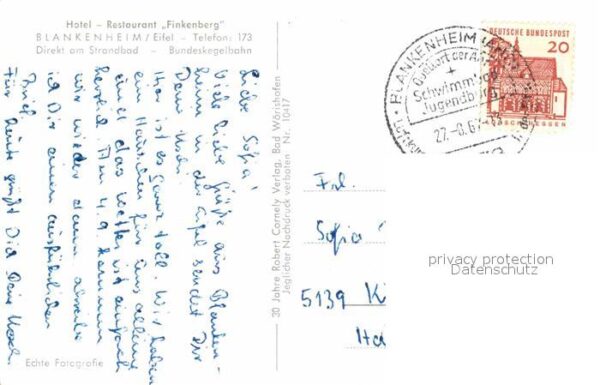 Hotel - Restaurant „Finkenberg"
BLANKENHEIM/Eifel - Telefon: 173
Direkt am Strandbad - Bundeskegelbahn
Liebe Sofia!
Viele liebe Grüße aus Blanken-
heim in der Eifel sendet Dir
Deine
Hier ist es ganz toll. Wir haben
ein Häuschen für uns alleine
und das Wetter ist einfach
herrlich. Am 4.9. kommen
wir wieder dann schreibe
ich Dir einen ausführlichen
Brief.
Für heute grüßt Dich Deine
Echte Fotografie
20 Jahre Robert Cornely Verlag, Bad Wörishofen
Jeglicher Nachdruck verboten Nr. 10417
BLANKENHEIM (AHR)
Schwimmbad
Jugendburg
DEUTSCHE BUNDESPOST
20
Frl.
Sofia
5139
privacy protection
Datenschutz